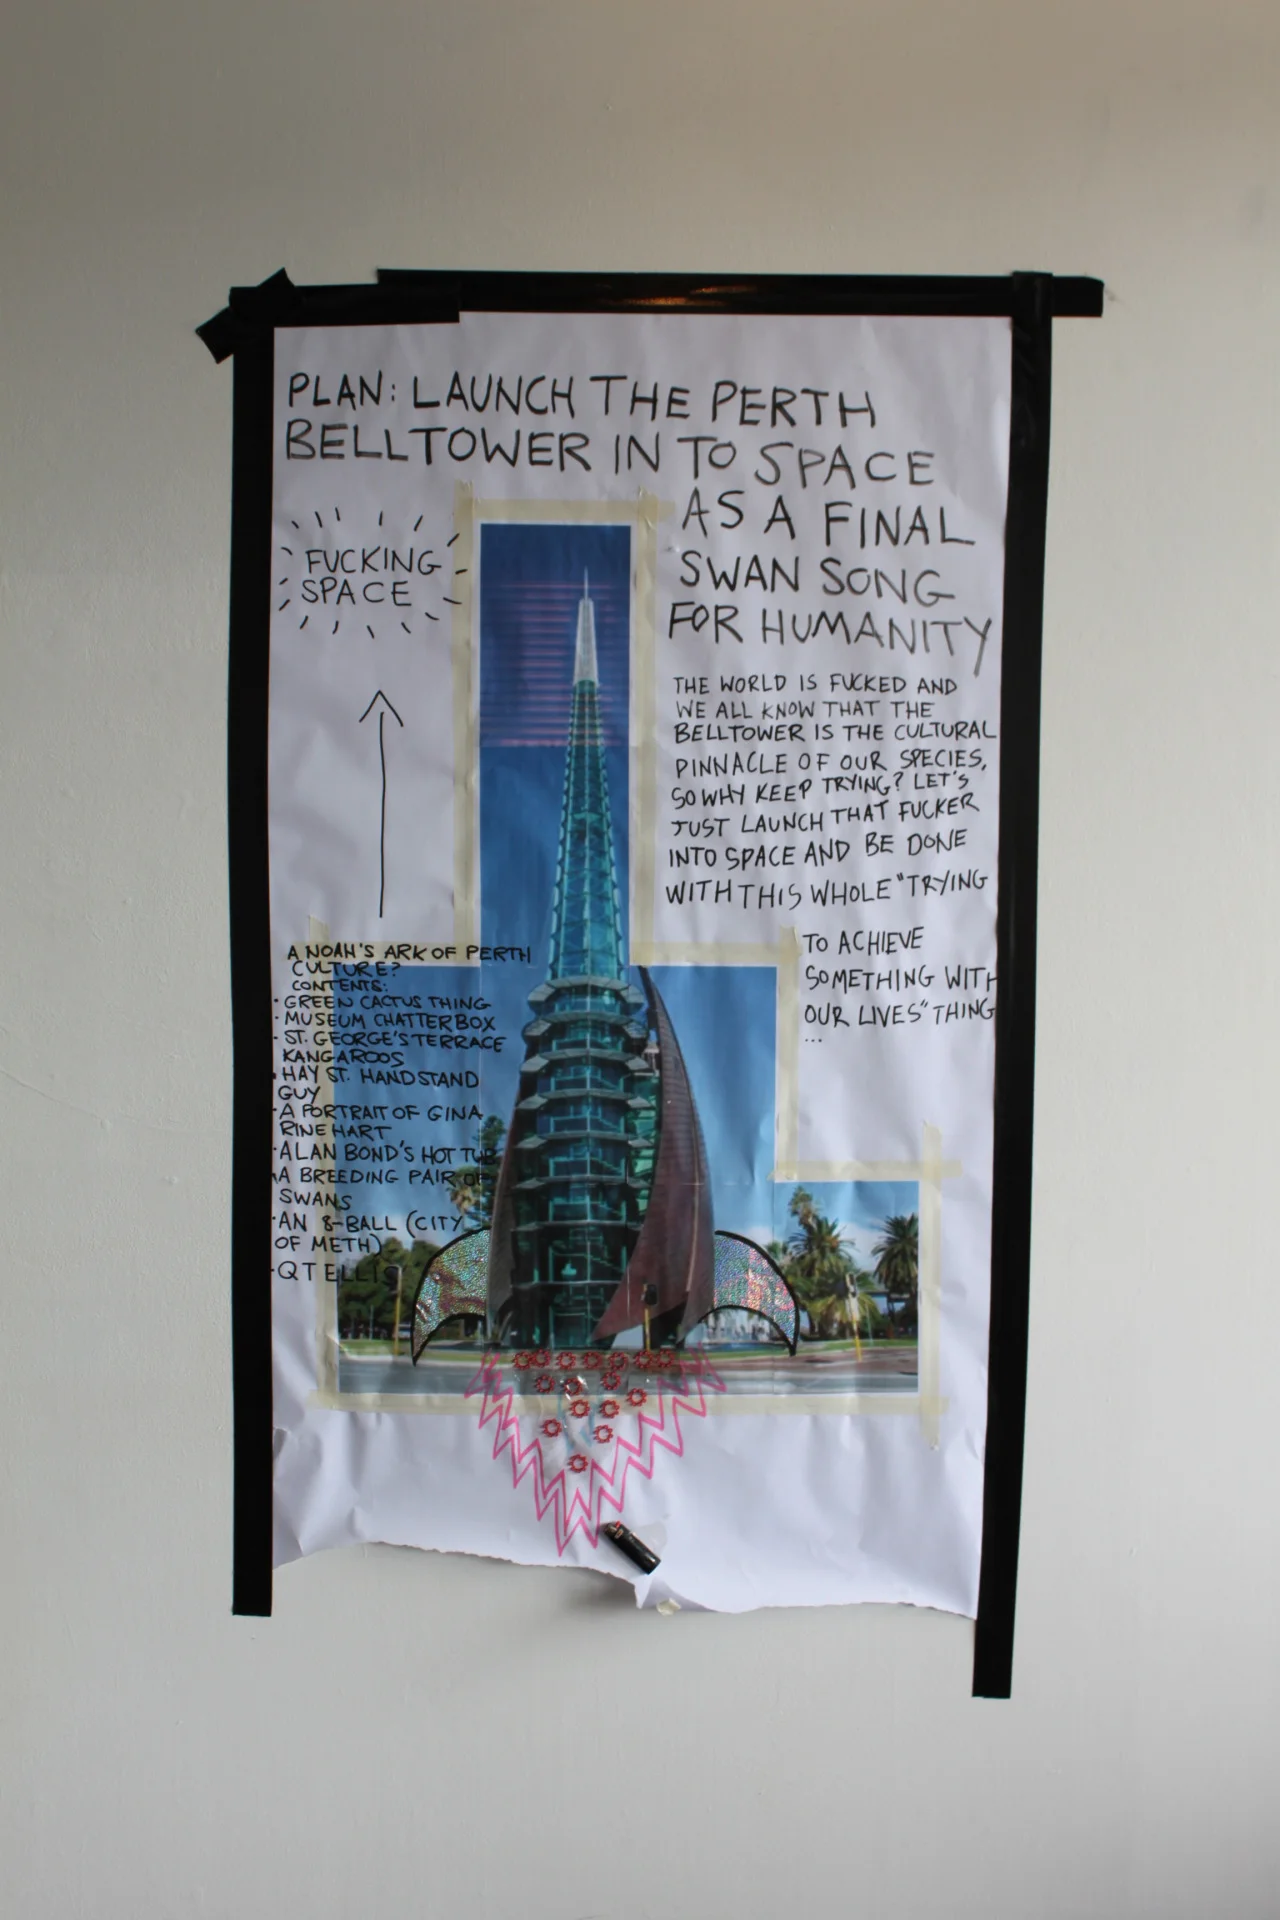 PLAN: LAUNCH THE PERTH
BELLTOWER IN TO SPACE
AS A FINAL
SWAN SONG
FOR HUMANITY
FUCKING
SPACE
THE WORLD IS FUCKED AND
WE ALL KNOW THAT THE
BELLTOWER IS THE CULTURAL
PINNACLE OF OUR SPECIES,
SO WHY KEEP TRYING? LET'S
JUST LAUNCH THAT FUCKER
INTO SPACE AND BE DONE
WITH THIS WHOLE "TRYING
TO ACHIEVE
SOMETHING WITH
OUR LIVES" THING
...
A NOAH'S ARK OF PERTH
CULTURE?
CONTENTS:
· GREEN CACTUS THING
· MUSEUM CHATTERBOX
· ST. GEORGE'S TERRACE
KANGAROOS
· HAY ST. HANDSTAND
GUY
· A PORTRAIT OF GINA
RINEHART
· ALAN BOND'S HOT TUB
· A BREEDING PAIR OF
SWANS
· AN 8-BALL (CITY
OF METH)
· QT ELLIS